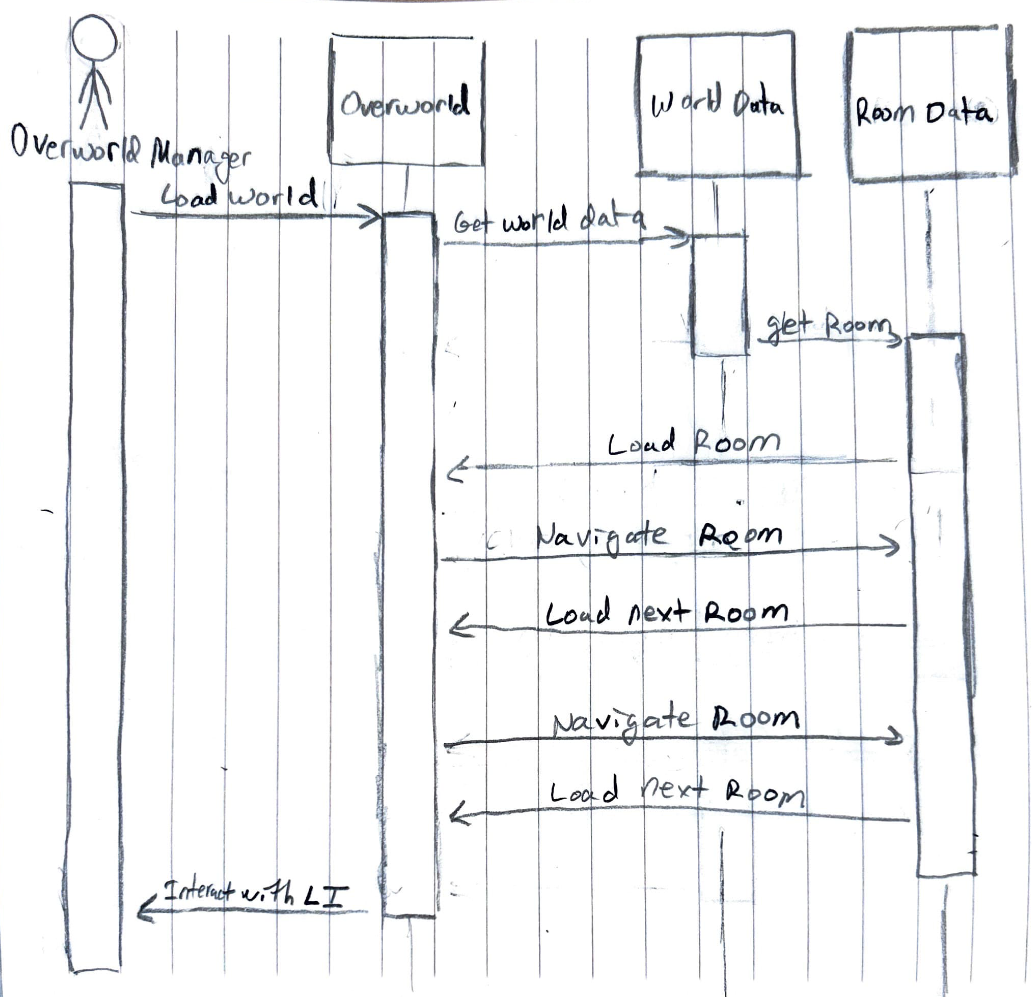 Overworld
World Data
Room Data
Overworld Manager
Load world
Get world data
get Room
Load Room
Navigate Room
Load next Room
Navigate Room
Load next Room
Interact with LI